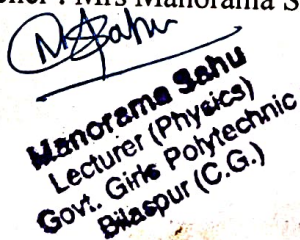 : Mrs Manorama S
Manorama Sahu
Lecturer (Physics)
Govt. Girls Polytechnic
Bilaspur (C.G.)